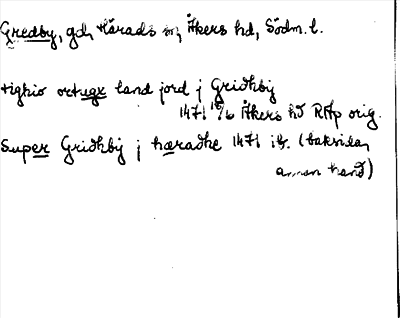 Gredby, gd, Härads sn, Åkers hd, Södm. l.
tighio ortugx land jord j Gridhby
1471 18/6 Åkers hd RAp orig.
Super Gridhby j hæradhe 1471 ib. (baksidan,
annan hand)